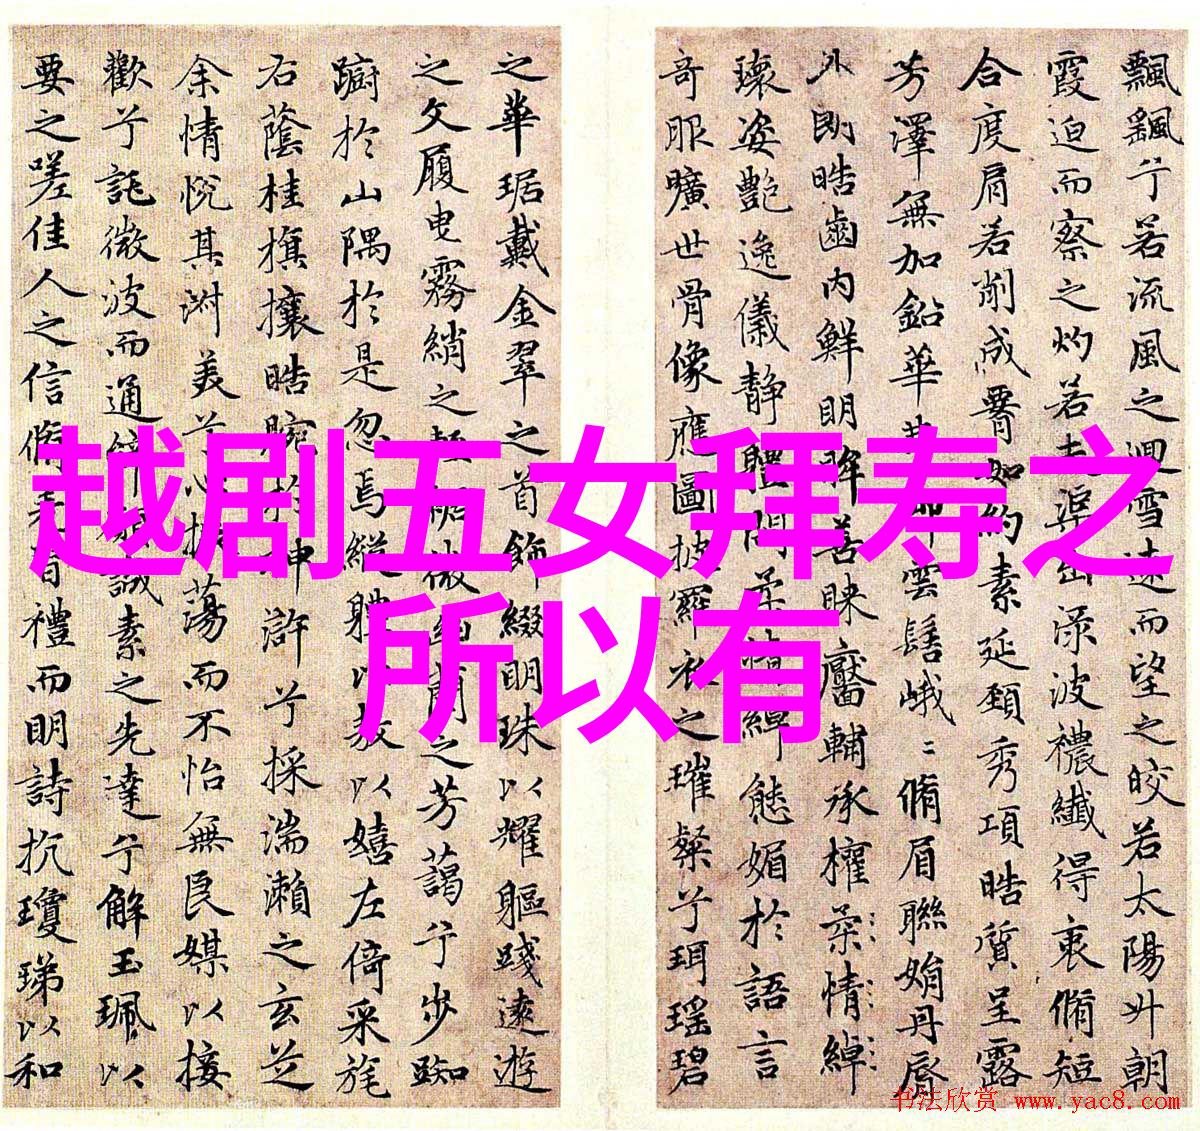 越剧五女拜寿之
所以有
飄飖兮若流風之迴雪遠而望之皎若太陽升朝
霞迫而察之灼若夫渠出渌波襛纖得衷脩短
合度肩若削成腰如約素延頸秀項皓質呈露
芳澤無加鉛華弗御雲髻峨〻脩眉聯娟丹脣
外朗皓齒内鮮明眸善睞靨輔承權柔情綽
瓌姿艷逸儀静體閑柔情綽態媚於語言
奇服曠世骨像應圖披羅衣之璀粲兮珥瑶碧
之華琚戴金翠之首飾綴明珠以耀軀踐遠遊
之文履曳霧綃之輕裾微幽蘭之芳藹兮步踟
躕於山隅於是忽焉縱體以敖以嬉左倚采旄
右蔭桂旗攘皓腕於神滸兮採湍瀨之玄芝
余情悅其淑美兮心振蕩而不怡無良媒以接
歡兮託微波而通辭願誠素之先達兮解玉珮以
要之嗟佳人之信脩羌習禮而明詩抗瓊珶以和
书法欣赏 www.yac8.com